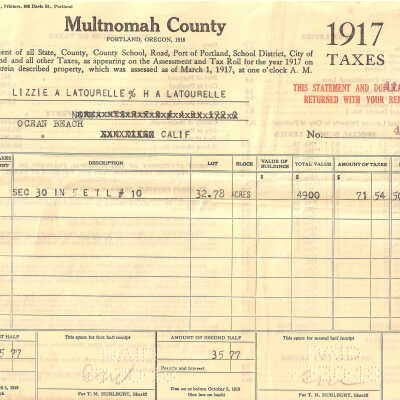 , Printers, 888 Davis St., Portland
Multnomah County
PORTLAND, OREGON, 1918
1917
TAXES
ment of all State, County, County School, Road, Port of Portland, School District, City of
and and all other Taxes, as appearing on the Assessment and Tax Roll for the year 1917 on
erein described property, which was assessed as of March 1, 1917, at one o'clock A. M.
THIS STATEMENT AND
RETURNED WITH YOUR RE
LIZZIE A LATOURELLE % H A LATOURELLE
OCEAN BEACH
CALIF.
No. 4
TAXES DESCRIPTION LOT BLOCK VALUE OF BUILDINGS TOTAL VALUE AMOUNT OF TAXES
$ $ $
SEC 30 IN 5 E T L # 10 32.78 ACRES 4900 71 54
T HALF This space for first half receipt AMOUNT OF SECOND HALF This space for second half receipt
5 77 35 77
Penalty and Interest
5, 1918 Due on or before October 5, 1918
For T. M. HURLBURT, Sheriff For T. M. HURLBURT, Sheriff